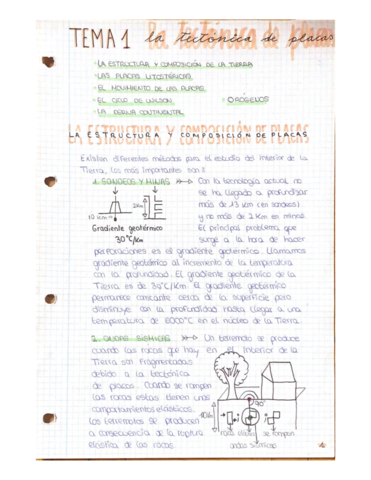 TEMA 1 la tectónica de placas
· LA ESTRUCTURA Y COMPOSICIÓN DE LA TIERRA
· LAS PLACAS LITOSFÉRICAS
· EL MOVIMIENTO DE LAS PLACAS
· EL CICLO DE WILSON
· OROGENOS
· LA DERIVA CONTINENTAL
LA ESTRUCTURA Y COMPOSICIÓN DE PLACAS
Existen diferentes métodos para el estudio del interior de la
Tierra, los más importantes son:
1. SONDEOS Y MINAS Con la tecnología actual no
se ha llegado a profundizar
más de 13 km (en sondeos)
y no más de 2 km en minas.
El principal problema que
surge a la hora de hacer
Gradiente geotérmico
30°C/Km
perforaciones es el gradiente geotérmico. Llamamos
gradiente geotérmico al incremento de la temperatura
con la profundidad. El gradiente geotérmico de la
Tierra es de 30°C/Km. El gradiente geotérmico
permanece constante cerca de la superficie pero
disminuye con la profundidad hasta llegar a una
temperatura de 6000°C en el núcleo de la Tierra.
2. ONDAS SISMICAS Un terremoto se produce
cuando las rocas que hay en el interior de la
Tierra son fragmentadas
debido a la tectónica
de placas. Cuando se rompen
las rocas estas tienen unos
comportamientos elásticos.
Los terremotos se producen
a consecuencia de la ruptura
elástica de las rocas.
se rompen
ondas sísmicas